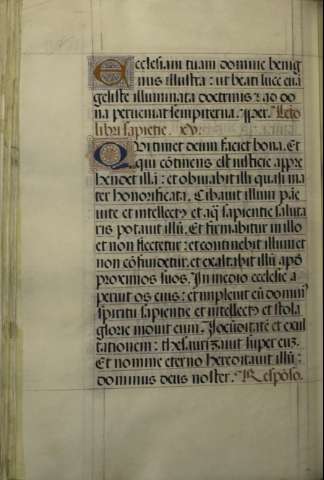 Ecclesiam tuam domine benig
nus illustra: ut beati luce eua
geliste illuminata doctrinis: ad do
na perueniat sempiterna. Lectio
libri sapietie. xv.
Qui timet deum faciet bona. Et
qui cōtinens est iusticie appre
hendet illā: et obuiabit illi quasi ma
ter honorificata. Cibauit illum pāe
uite et intellectus et aq̄ sapientie saluta
ris potauit illū. Et firmabitur in illo
et non flectetur: et continebit illum et
non cōfundetur. et exaltabit illū apd
proximos suos. In medio ecclesie a
peruit os eius: et impleuit eū domin⁹
spiritu sapientie et intellectus et stola
glorie induit eum. Iocūditatē et exul
tationem: thesaurizauit super eum.
Et nomine eterno hereditauit illū:
dominus deus noster. Respōso.